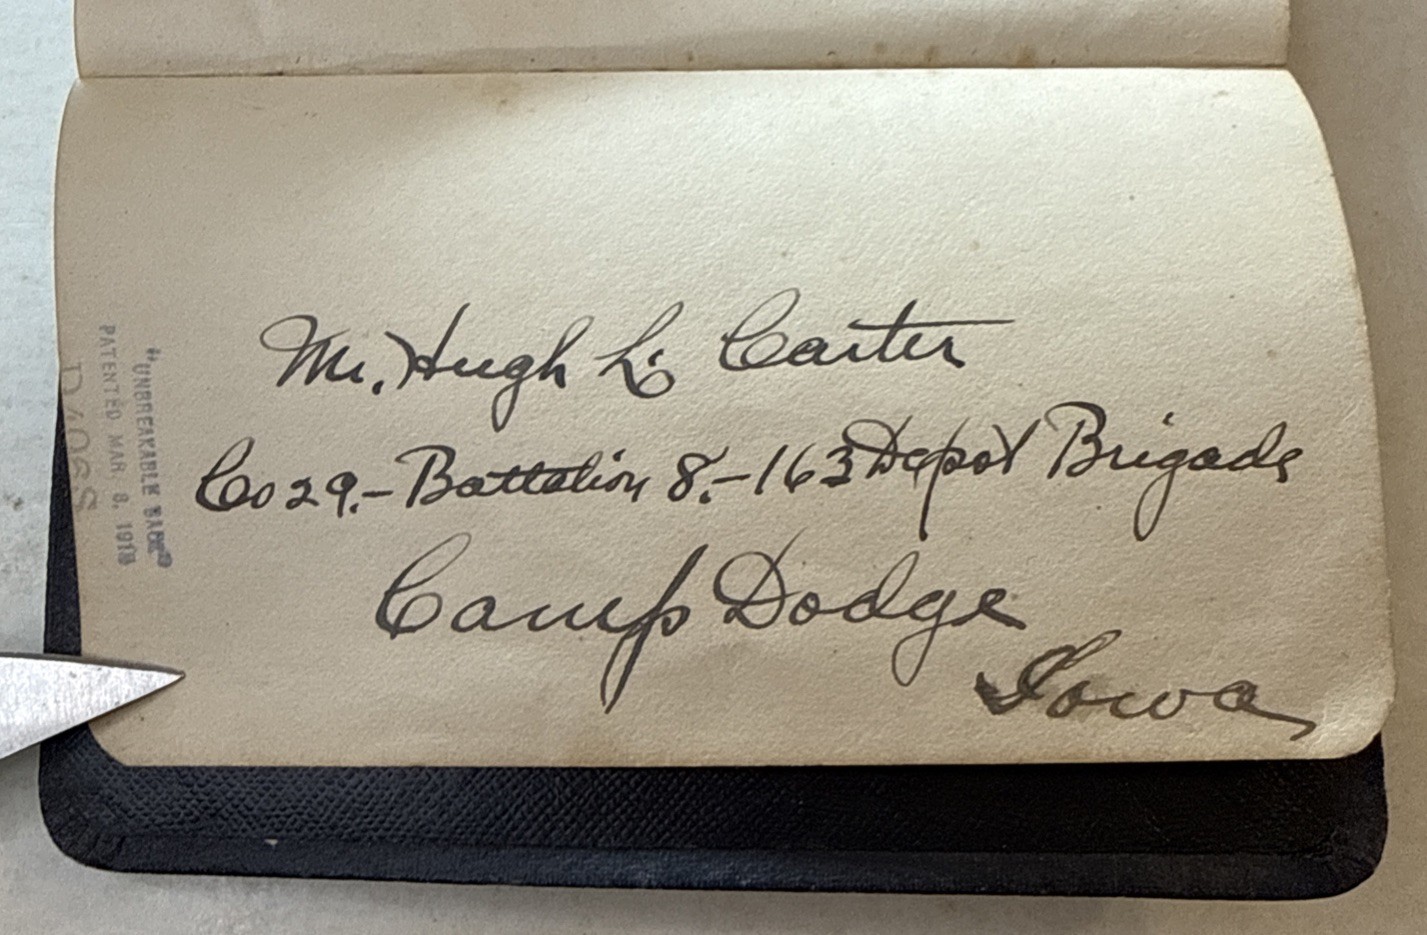 Mr. Hugh L. Carter
Co 29.- Battalion 8.-163 Depot Brigade
Camp Dodge
Iowa
"UNBREAKABLE BACK"
PATENTED MAR. 8, 191